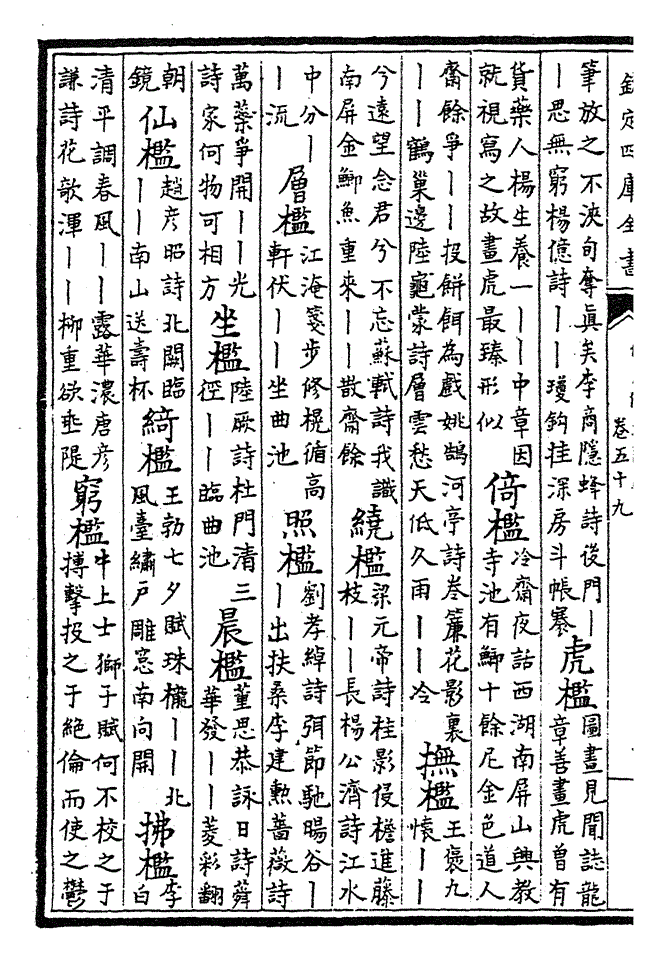 欽定四庫全書
卷五十九
筆放之不浹旬奪真矣李商隱蜂詩後門丨
丨思無窮楊億詩丨丨瓊鈎挂深房斗帳褰
虎檻
圖畫見聞誌龍
章善畫虎曽有
貨藥人楊生養一丨丨中章因
就視寫之故畫虎最臻形似
倚檻
冷齋夜話西湖南屏山興教
寺池有鯽十餘尾金色道人
齋餘爭丨丨投餅餌為戯姚鵠河亭詩巻簾花影裏
丨丨鶴巢邊陸龜蒙詩層雲愁天低久雨丨丨冷
撫檻
王褒九
懐丨丨
兮遠望念君兮不忘蘇軾詩我識
南屏金鯽魚重來丨丨散齋餘
繞檻
梁元帝詩桂影侵檐進藤
枝丨丨長楊公濟詩江水
中分丨
丨流
層檻
江淹箋步修榥循高
軒伏丨丨坐曲池
照檻
劉孝綽詩弭節馳暘谷丨
丨出扶桑李建勲薔薇詩
萬蘂爭開丨丨光
詩家何物可相方
坐檻
陸厥詩杜門清三
徑丨丨臨曲池
晨檻
董思恭詠日詩蕣
華發丨丨菱彩翻
朝
鏡
仙檻
趙彦昭詩北闕臨
丨丨南山送壽杯
綺檻
王勃七夕賦珠櫳丨丨北
風臺繡戸雕窓南向開
拂檻
李
白
清平調春風丨丨露華濃唐彦
謙詩花敧渾丨丨柳重欲垂隄
窮檻
牛上士獅子賦何不校之于
搏擊投之于絶倫而使之鬱